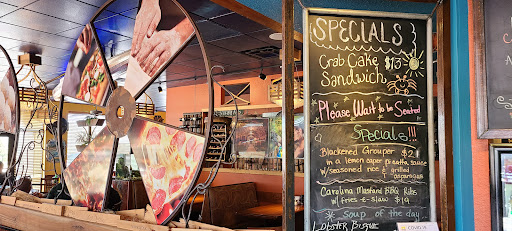 SPECIALS
Crab Cake $13
Sandwich
Please Wait to be Seated
Specials!!!
Blackened Grouper $21
in a lemon caper piccatta sauce
w/seasoned rice & grilled
asparagus
Carolina Mustard BBQ Ribs
w/ fries & slaw $19
* Soup of the day
Lobster Bisque